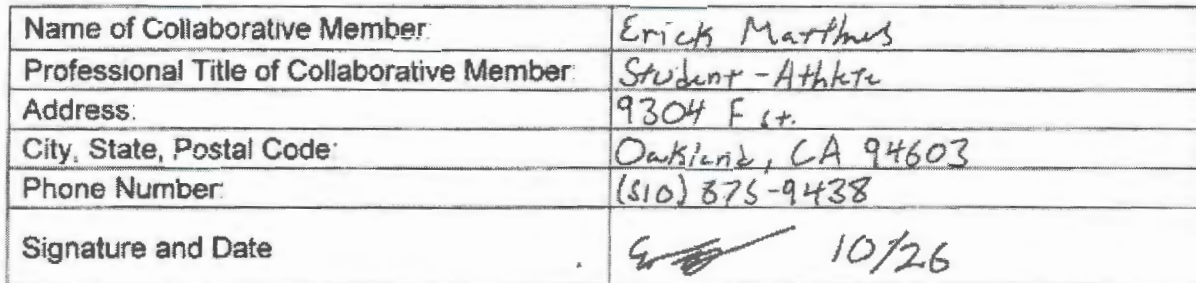 Name of Collaborative Member: Erick Matthews
Professional Title of Collaborative Member: Student-Athlete
Address: 9304 F st.
City, State, Postal Code: Oakland, CA 94603
Phone Number: (510) 875-9438
Signature and Date 10/26